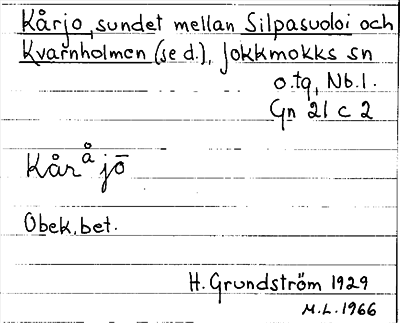 Kårjo, sundet mellan Silpasuoloi och
Kvarnholmen (se d.), Jokkmokks sn
o. tg, Nb. l.
Gn 21 c 2
Kåråjō
Obek. bet.
H. Grundström 1929
M.L. 1966